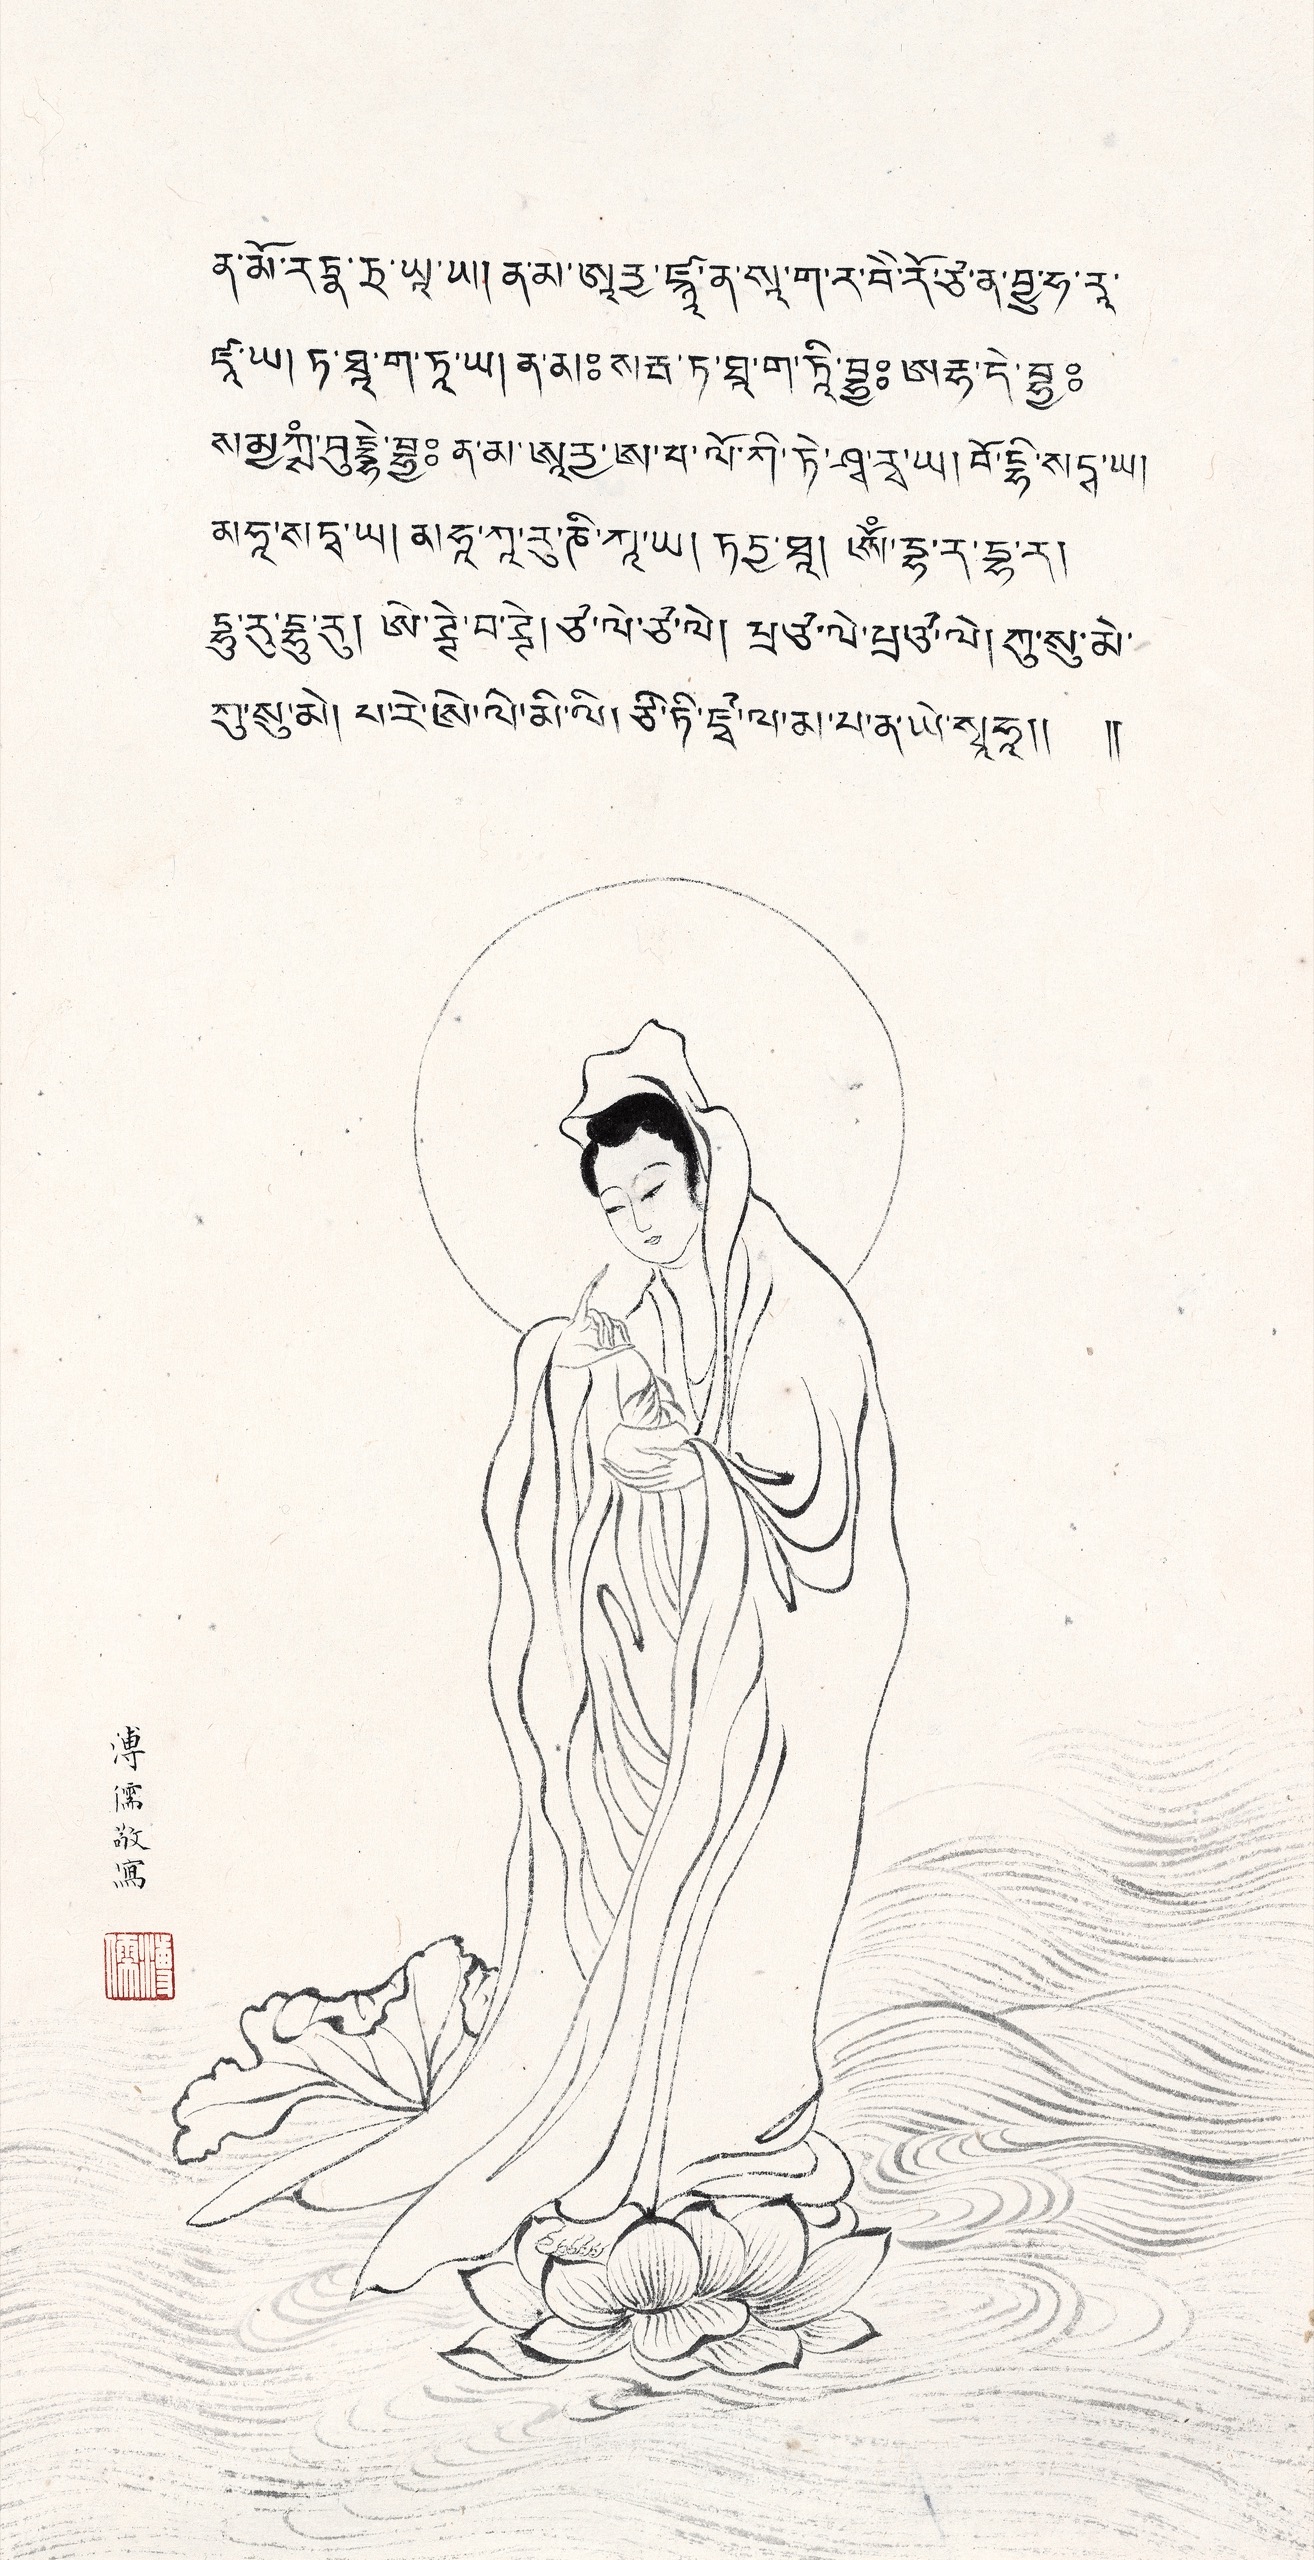 ན་མོ་རཏྣ་ཏྲ་ཡཱ་ཡ། ན་མ་ཨཱརྱ་ཛྙཱ་ན་སཱ་ག་ར་བེ་རོ་ཙ་ན་བྱུ་ཧ་རཱ་
ཛཱ་ཡ། ཏ་ཐཱ་ག་ཏཱ་ཡ། ན་མཿ སརྦ་ཏ་ཐཱ་ག་ཏེ་བྷྱཿ ཨརྷ་ད་བྷྱཿ
སམྱཀྶཾ་བུདྡྷེ་བྷྱཿ ན་མ་ཨཱརྱ་ཨ་བ་ལོ་ཀི་ཏེ་ཤྭ་རཱ་ཡ། བོ་དྷི་སཏྭ་ཡ།
མ་ཧཱ་སཏྭ་ཡ། མ་ཧཱ་ཀཱ་རུ་ཎི་ཀཱ་ཡ། ཏདྱ་ཐཱ། ཨོཾ་དྷ་ར་དྷ་ར།
དྷུ་རུ་དྷུ་རུ། ཨི་ཊྚེ་བ་ཊྚེ། ཙ་ལེ་ཙ་ལེ། པྲ་ཙ་ལེ་པྲ་ཙ་ལེ། ཀུ་སུ་མེ་
ཀུ་སུ་མེ། བ་རེ་ཨི་ལི་མི་ལི། ཙི་ཏི་ཛྭ་ལ་མ་པ་ན་ཡེ་སྭཱ་ཧཱ།། ༎
溥儒敬寫
溥儒